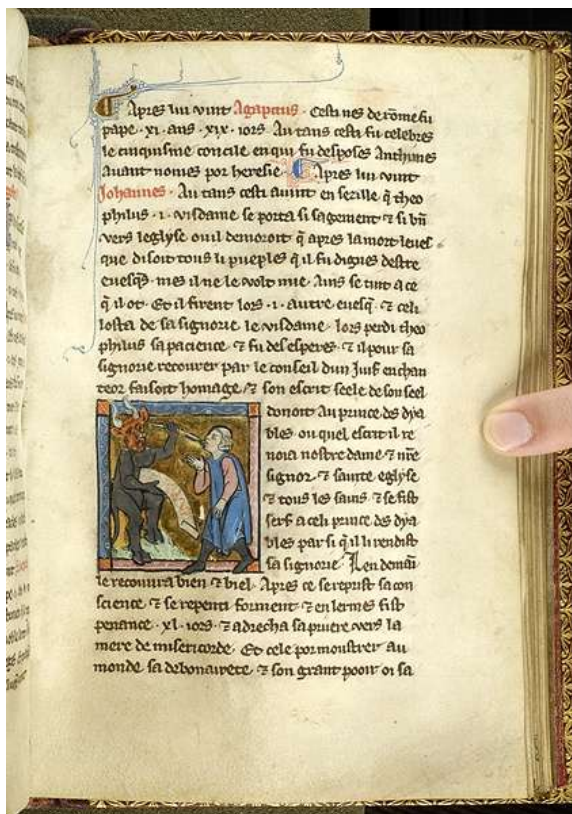 Apres lui vint Agapitus · Cesti nes de rome fu
pape · xi · ans · xix · iors · Au tans cesti fu celebres
le cinquisme concile en qui fu desposes Anthimes
auant nomes por heresie · Apres lui vint
Johannes · Au tans cesti auint en sezille q̄ theo
philus · i · visdame se porta si sagement ⁊ si bñ
vers leglyse ou il demoroit q̄ apres la mort leues
que disoit tous li pueples q̄ il fu dignes destre
euesq̄ · mes il ne le volt mie · Ains se tint a ce
q̄ il ot · Et il firent lors · i · autre euesq̄ · ⁊ celi
losta de sa signorie le visdame · lors perdi theo
philus sa pacience ⁊ fu desesperes · ⁊ il pour sa
signorie recourer par le conseil dun Juif enchan
teor faisoit homage ⁊ son escrit seele de son seel
donoit Au prince des dya
bles · ou quel escrit il re
noia nostre dame · ⁊ nr̄e
signor · ⁊ sainte eglyse
⁊ tous les sains · ⁊ se fist
serf a celi prince des dya
bles par si q̄ il li rendist
sa signorie · Len demai
le recouura bien ⁊ biel · Apres ce se reprist sa con
science · ⁊ se repenti forment · ⁊ en lermes fist
penance · xl · iors · ⁊ adrecha sa priere vers la
mere de misericorde · Et cele por moustrer au
monde sa debonairete ⁊ son grant pooir oi sa